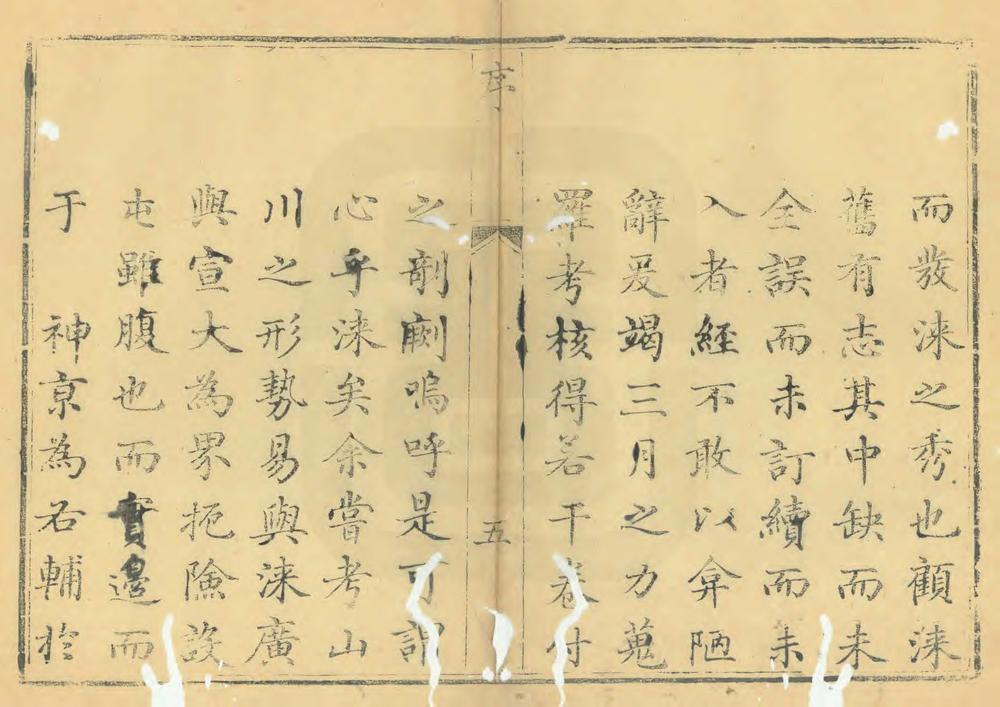 而發淶之秀也顧淶
舊有志其中缺而未
全誤而未訂續而未
入者經不敢以弇陋
辭爰竭三月之力蒐
羅考核得若干卷付
序
五
之剞劂嗚呼是可謂
心乎淶矣余嘗考山
川之形勢易與淶廣
與宣大為界扼險設
屯雖腹也而實邊而
于 神京為右輔於